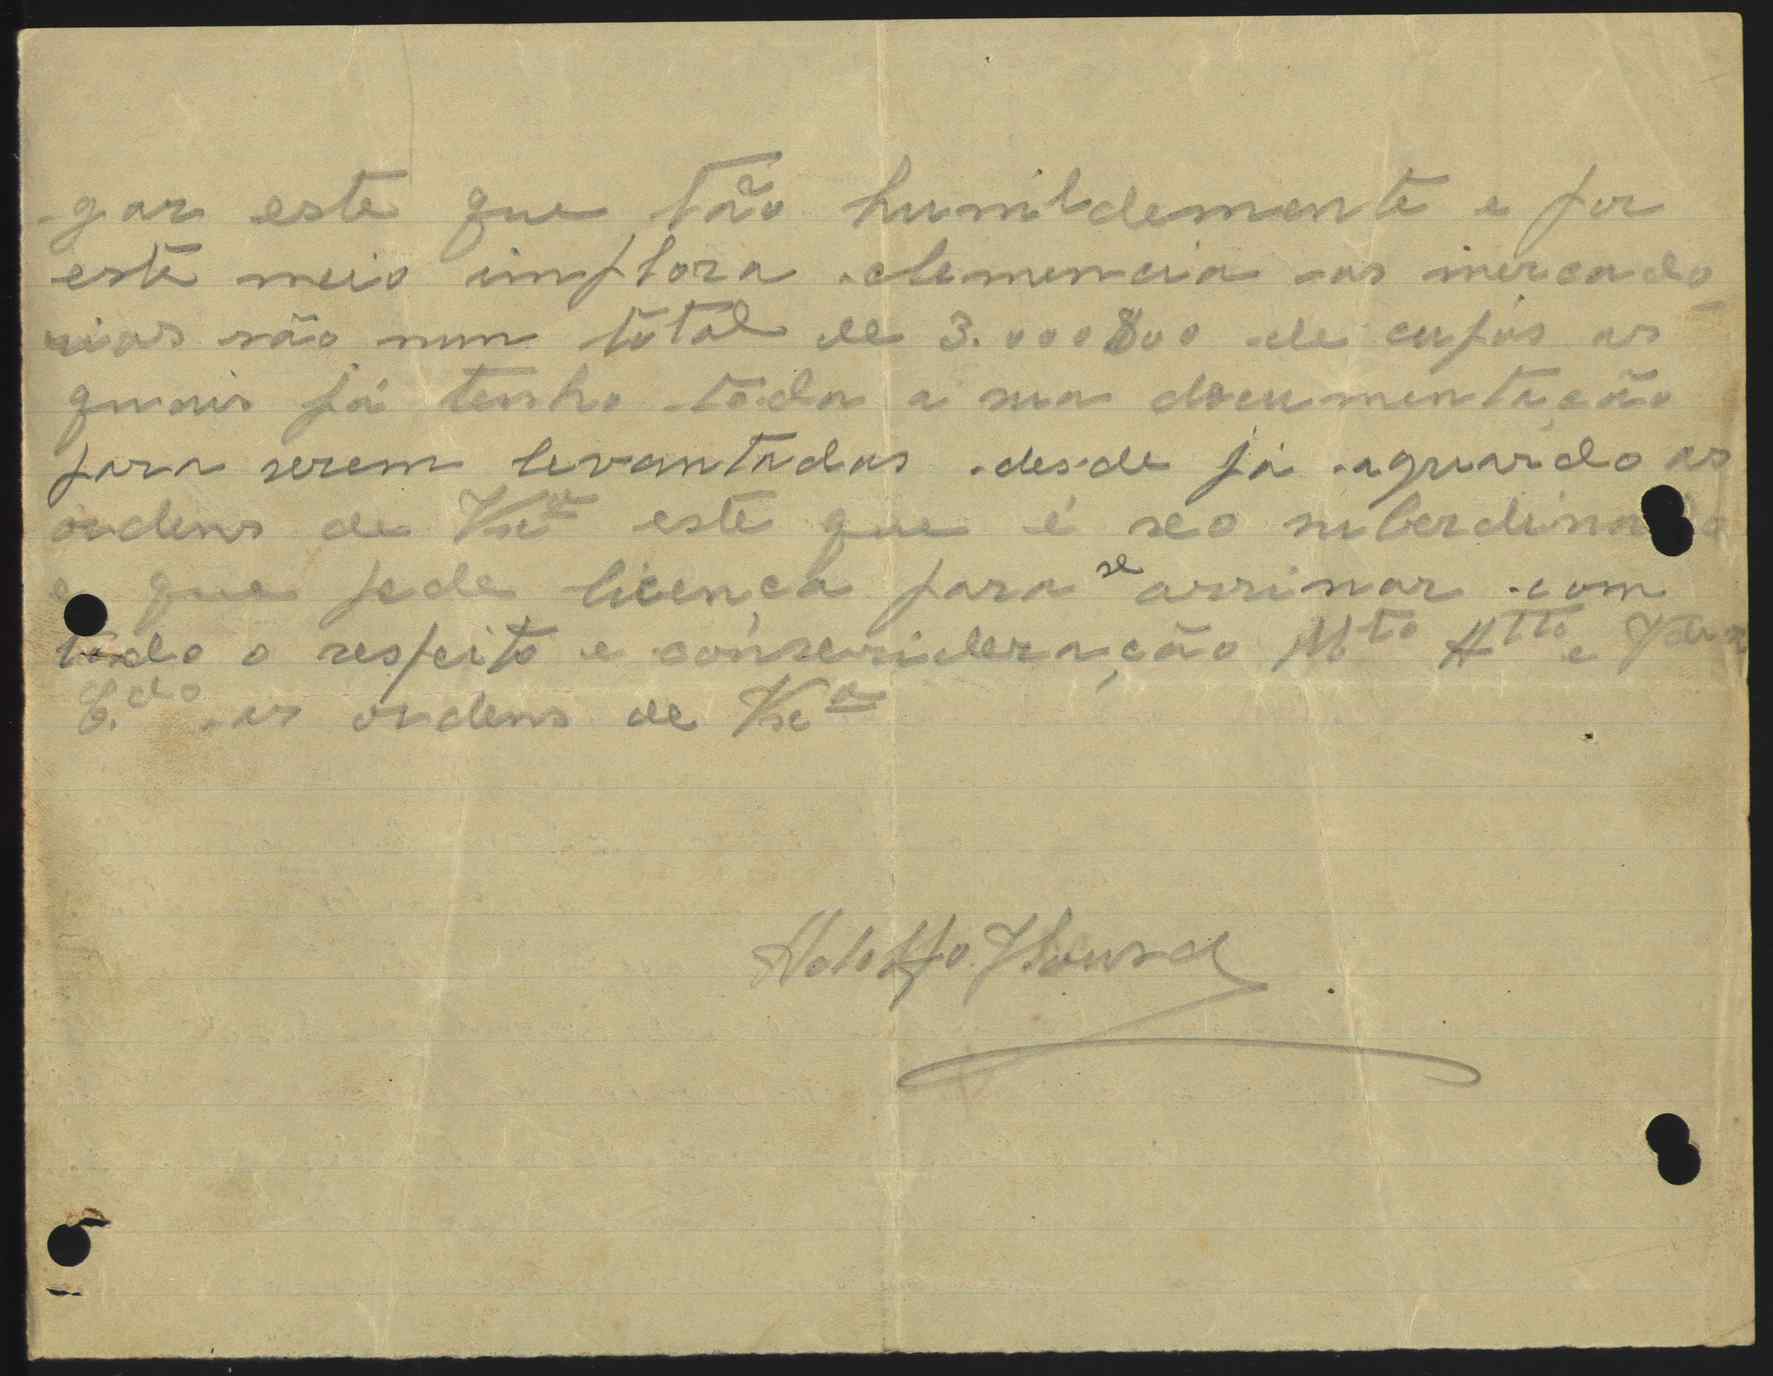 gar este que tão humildemente e por
este meio implora clemencia as mercado
rias são num total de 3.000$00 de cujas as
quais já tenho toda a sua documentação
para serem levantadas desde já aguardo as
ordens de Vxª este que é seo suberdinado
e que pede licença para se assinar com
todo o respeito e conserideração Mto Atto e
as ordens de Vxª
Adolffo